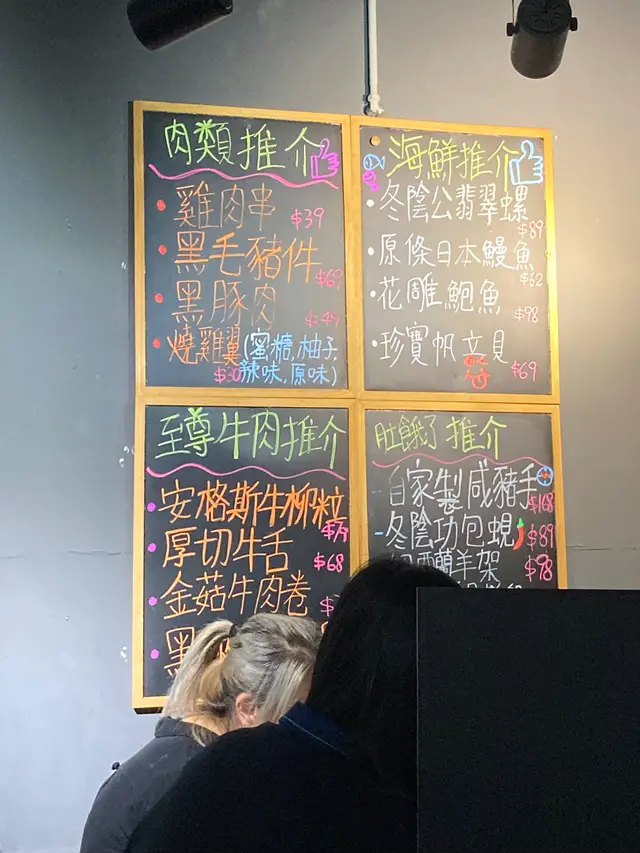 肉類推介
雞肉串 $39
黑毛豬件 $69
黑豚肉 $49
燒雞翼(蜜糖,柚子,
$30 辣味,原味)
海鮮推介
冬陰公翡翠螺 $89
原條日本鰻魚 $62
花雕鮑魚 $98
珍寶帆立貝 $69
至尊牛肉推介
安格斯牛柳粒
厚切牛舌 $68
金菇牛肉卷
黑
肚餓了推介
自家製咸豬手 $168
冬陰功包蜆 $89
西蘭羊架 $98